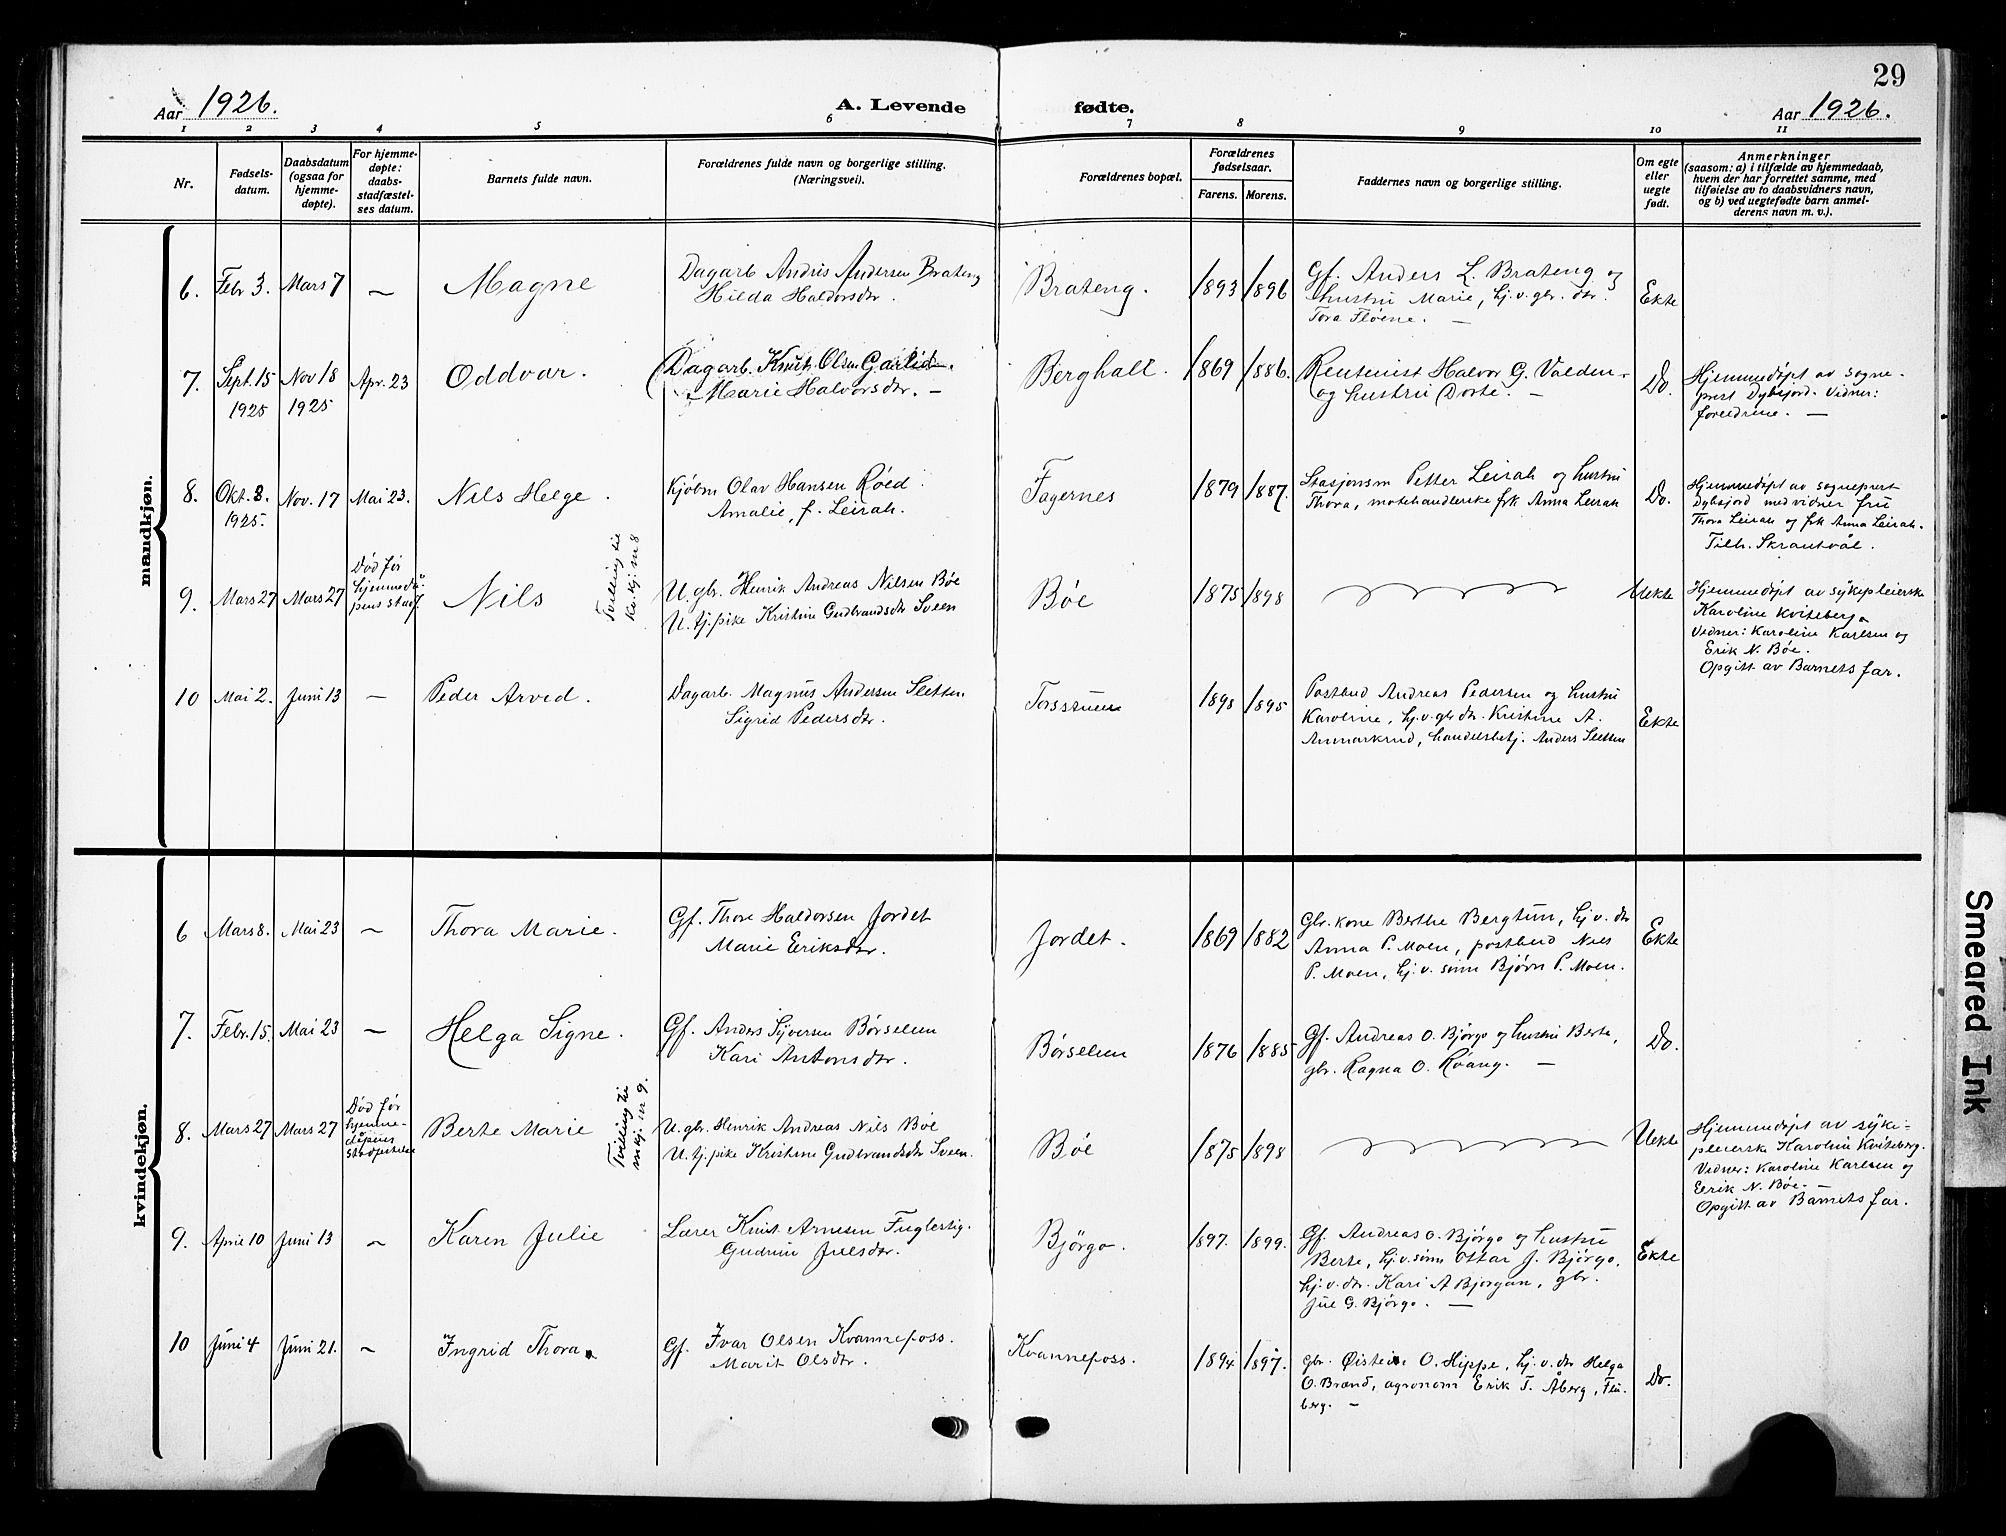 29
Aar 1926.
A. Levende fødte.
Aar 1926.
1 2 3 4 5 6 7 8 9 10 11
Nr.
Fødsels-
datum.
Daabsdatum
(ogsaa for
hjemme-
døpte).
For hjemme-
døpte:
daabs-
stadfæstel-
ses datum.
Barnets fulde navn.
Forældrenes fulde navn og borgerlige stilling.
(Næringsvei).
Forældrenes bopæl.
Forældrenes
fødselsaar.
Farens. Morens.
Faddernes navn og borgerlige stilling.
Om egte
eller
uegte
født.
Anmerkninger
(saasom: a) i tilfælde av hjemmedaab,
hvem der har forrettet samme, med
tilføielse av to daabsvidners navn,
og b) ved uegtefødte barn anmel-
derens navn m. v.).
mandkjøn.
6. Febr 3. Mars 7 — Magne
Dagarb Andris Andersen Brateng
Hilda Haldorsdtr.
Brateng. 1893 1896
Gf. Anders L. Brateng og
hustru Marie, hj.v. gbr. dtr.
Tora Fløene. —
Ekte
7. Sept. 15
1925
Nov 18
1925
Apr. 23
Oddvar.
Dagarb. Knut Olsen Garlid.
Marie Halvorsdtr. —
Berghall 1869 1886.
Rentenist Halvor G. Volden
og hustru Dorte. —
Do.
Hjemmedøpt av sogne-
prest Dybsjord. Vidner:
foreldrene. —
8. Okt. 8.
1925.
Nov. 17
Mai 23.
Nils Helge.
Kjøbm Olav Hansen Røed.
Amalie, f. Leirah.
Fagernes 1879 1887.
Stasjonsm Petter Leirah og hustru
Thora, motehandlerske frk Anna Leirah
Do.
Hjemmedøpt av sogneprest
Dybsjord med vidner fru
Thora Leirah og frk Anna Leirah.
Tilh. Skrautvål.
9. Mars 27 Mars 27
Død før
hjemmedå-
pens stadf.
Nils
Tvilling til
kv.kj. nr 8
U. gbr. Henrik Andreas Nilsen Bøe
U. tj. pike Kristine Gudbrandsdtr Sveen
Bøe 1875 1898
Uekte
Hjemmedøpt av sykepleierske
Karoline Kviteberg
Vidner: Karoline Karlsen og
Erik N. Bøe.
Opgitt av Barnets far.
10 Mai 2. Juni 13 — Peder Arved.
Dagarb. Magnus Andersen Sletten
Sigrid Pedersdtr.
Torsstuen 1898 1895
Postbud Andreas Pedersen og hustru
Karoline, hj.v. gbr dtr. Kristine A.
Ammarkrud, handelsbetj. Anders Sletten
Ekte
kvindekjøn.
6 Mars 8. Mai 23 — Thora Marie.
Gf. Thore Haldorsen Jordet
Marie Eriksdtr.
Jordet. 1869 1882
Gbr. kone Berthe Bergtun, hj.v. dtr
Anna P. Moen, postbud Nils
P. Moen, hj.v. sønn Bjørn P. Moen.
Ekte
7. Febr. 15. Mai 23 — Helga Signe.
Gf. Anders Syversen Børselien
Kari Antonsdtr.
Børselien 1876 1885
Gf. Andreas O. Bjørgo og hustru Berte,
gbr. Ragna O. Røang. —
Do.
8. Mars 27 Mars 27
Død før
hjemme-
dåpens
Berte Marie
Tvilling til
m.kj. nr 9.
U. gbr. Henrik Andreas Nils Bøe
U. tj. pike Kristine Gudbrandsdtr Sveen.
Bøe 1875 1898
Uekte
Hjemmedøpt av syke-
pleierske Karoline Kviteberg.
Vidner: Karoline Karlsen og
Erik N. Bøe. —
Opgitt av Barnets far.
9. April 10 Juni 13 — Karen Julie
Lærer Knut Arnesen Fuglestig.
Gudrun Julsdtr.
Bjørgo. 1897. 1899.
Gf. Andreas O. Bjørgo og hustru
Berte, hj.v. sønn Ottar J. Bjørgo,
hj.v. dtr. Kari A Bjørgan, gbr.
Jul G. Bjørgo. —
Ekte
10 Juni 4 Juni 21. — Ingrid Thora.
Gf. Ivar Olsen Kvannefoss.
Marit Olsdtr.
Kvannefoss. 1894 1897.
gbr. Øistein O. Hippe, hj.v. dtr Helga
O. Brand, agronom Erik T. Åberg, Flu-
berg. —
Do.
Smeared Ink